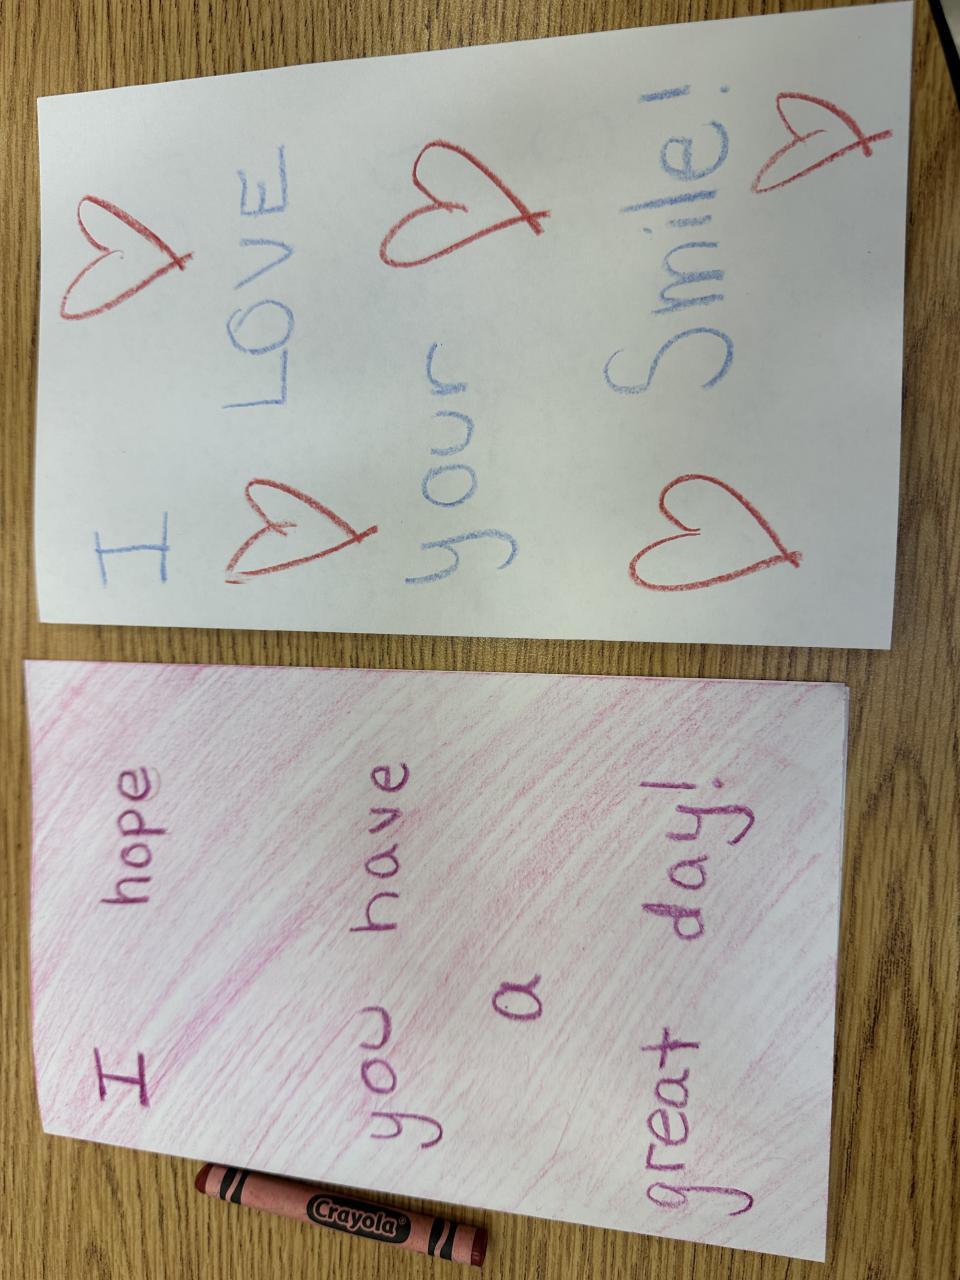 I LOVE
your
Smile!
I hope
you have
a
great day!
Crayola®